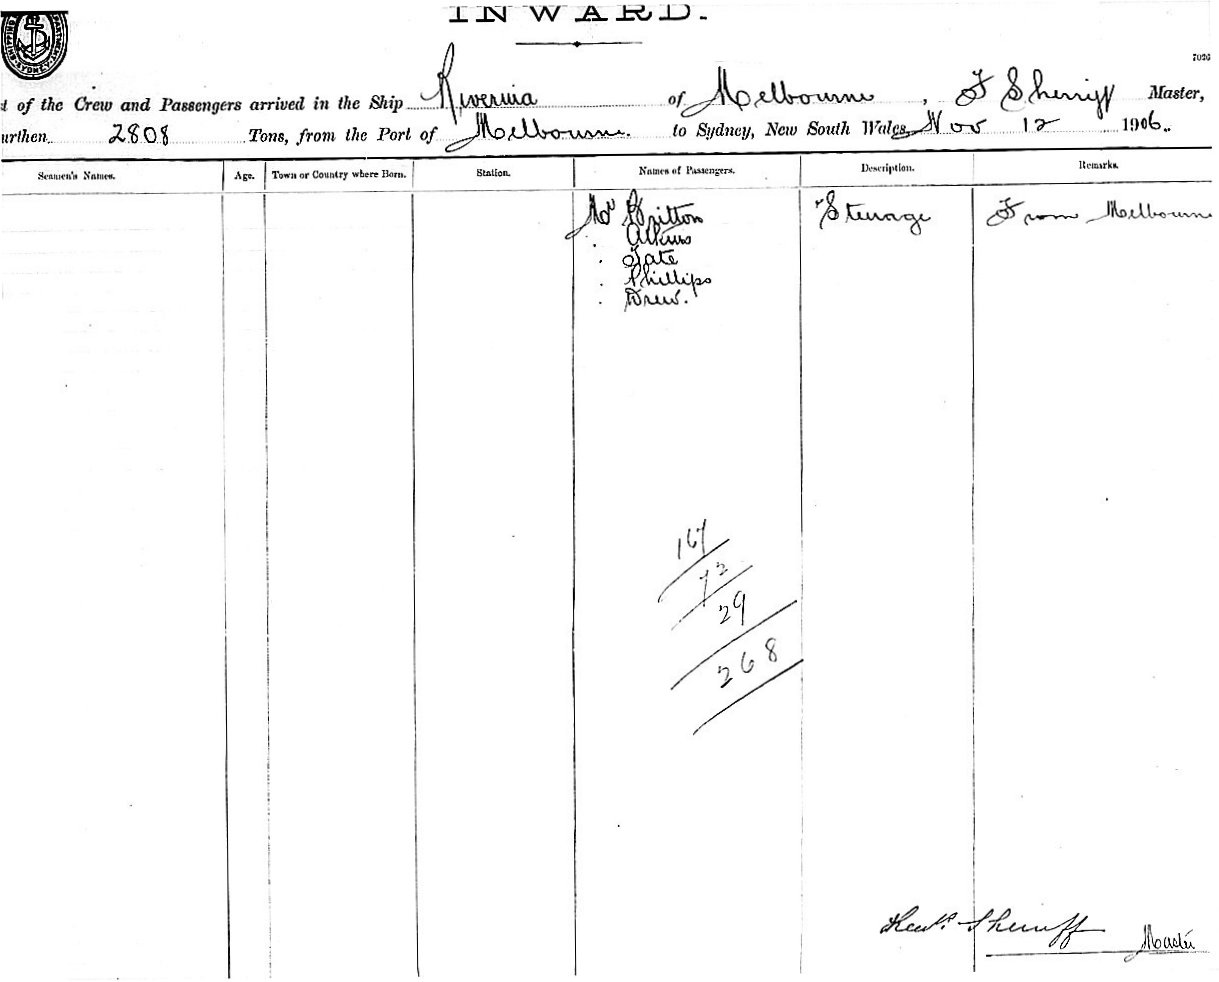 INWARD.
SHIPPING SYDNEY DEPARTMENT
7020
t of the Crew and Passengers arrived in the Ship Riverina of Melbourne, F Sherriff Master,
urthen 2808 Tons, from the Port of Melbourne. to Sydney, New South Wales, Nov 12 1906.
Seamen's Names. Age. Town or Country where Born. Station. Names of Passengers. Description. Remarks.
Mr Britton Steerage From Melbourne
. Atkins
. Tate
. Phillips
. Drew.
167
72
29
268
Sherriff Master